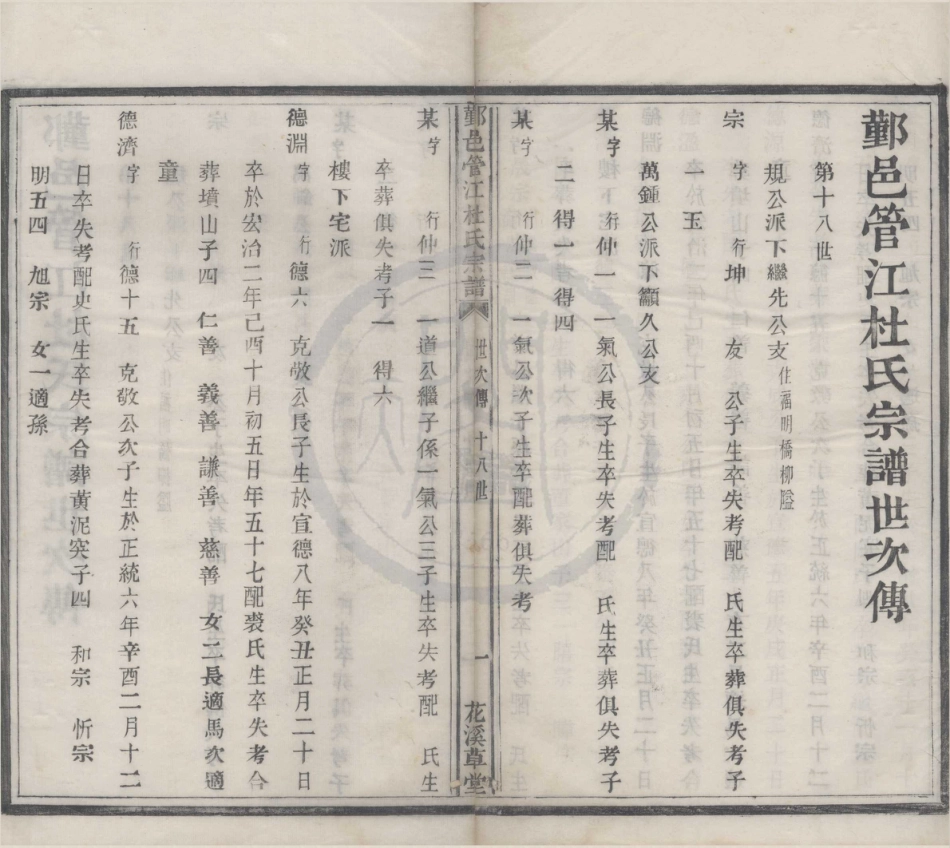 鄞邑管江杜氏宗譜世次傳
第十八世
規公派下繼先公支住福明橋柳隘
宗 字 行坤 友 公子生卒失考配 氏生卒葬俱失考子
一 玉
萬鍾公派下籲久公支
某字 行仲一 一氣公長子生卒失考配 氏生卒葬俱失考子
二 得一 得四
某字 行仲二 一氣公次子生卒配葬俱失考
鄞邑管江杜氏宗譜 世次傳 十八世 一 花溪草堂
某字 行仲三 一道公繼子係一氣公三子生卒失考配 氏生
卒葬俱失考子一 得六
樓下宅派
德淵字 行德六 克敬公長子生於宣德八年癸丑正月二十日
卒於宏治二年己酉十月初五日年五十七配裘氏生卒失考合
葬墳山子四 仁善 義善 謙善 慈善 女二長適馬次適
童
德濟字 行德十五 克敬公次子生於正統六年辛酉二月十二
日卒失考配史氏生卒失考合葬黃泥突子四 和宗 忻宗
明五四 旭宗 女一適孫